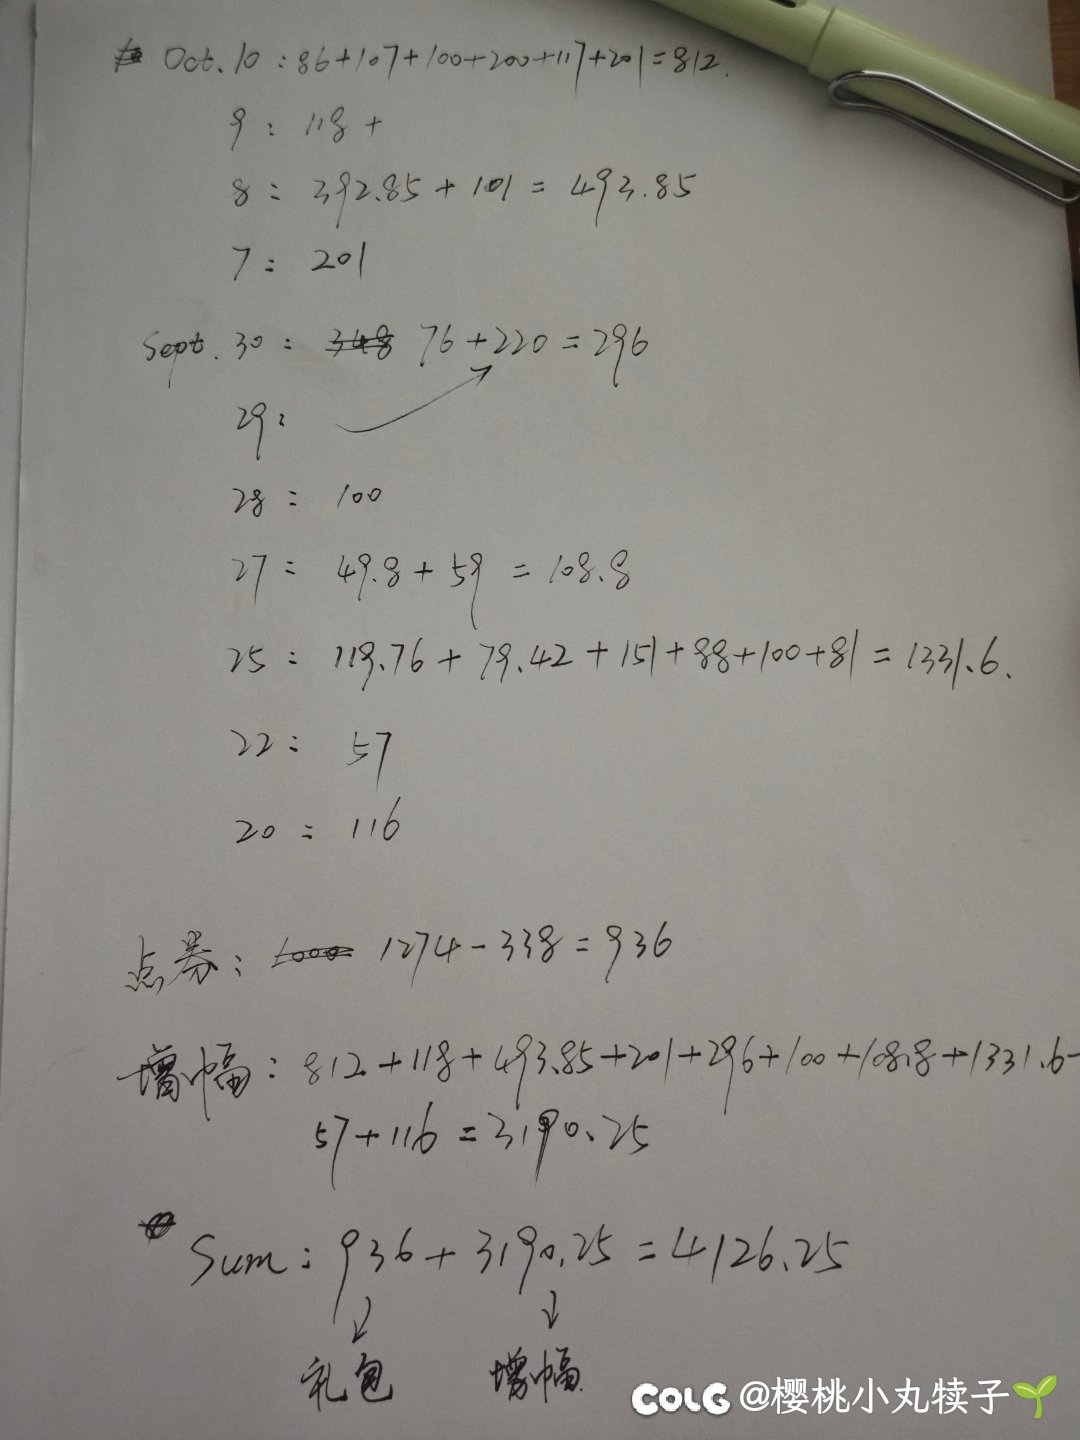 Oct. 10 : 86+107+100+200+117+201=812.
9 : 118 +
8 : 392.85 + 101 = 493.85
7 : 201
Sept. 30 : 348 76+220=296
29 :
28 : 100
27 : 49.8 + 59 = 108.8
25 : 119.76 + 79.42 + 151+88+100+81 = 1331.6.
22 : 57
20 : 116
点券: 1000 1274-338=936
增幅: 812+118+493.85+201+296+100+108.8+1331.6+
57+116=3190.25
Sum : 936+3190.25=4126.25
礼包 增幅
COLG @樱桃小丸犊子🌱